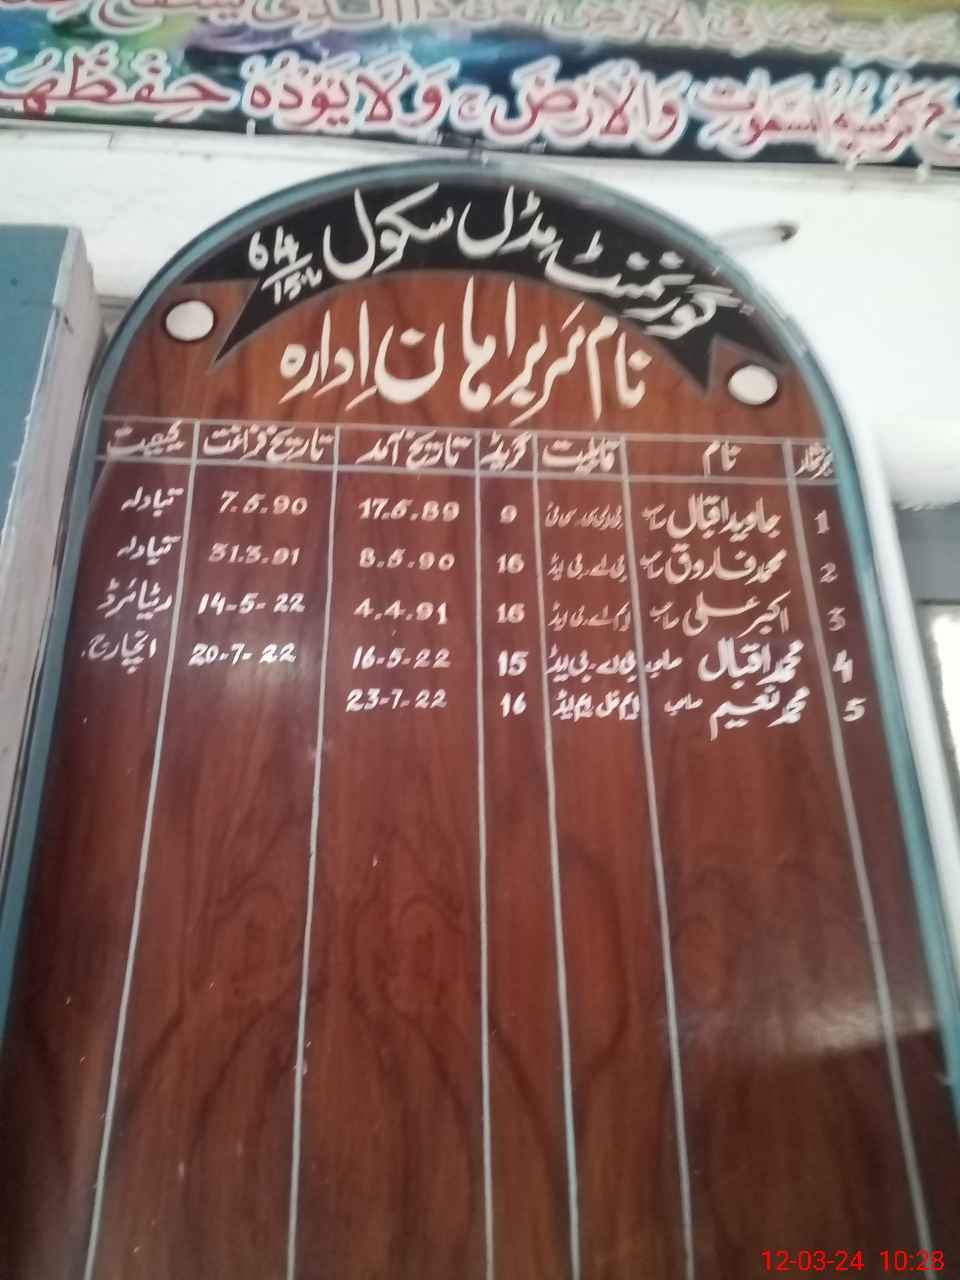 وَالْاَرْضَ ۚ وَلَا يَؤُدُهٗ حِفْظُهُمَا
گورنمنٹ مڈل سکول 64/15L
نام سربراہان اِدارہ
نمبرشمار نام قابلیت گریڈ تاریخ آمد تاریخ فراغت کیفیت
1 جاوید اقبال صاحب 9 17.5.89 7.5.90 تبادلہ
2 محمد فاروق صاحب بی اے۔بی ایڈ 16 8.5.90 31.3.91 تبادلہ
3 اکبر علی صاحب ایم اے۔بی ایڈ 16 4.4.91 14-5-22 ریٹائرڈ
4 محمد اقبال صاحب بی اے۔بی ایڈ 15 16-5-22 20-7-22 انچارج۔
5 محمد نعیم صاحب ایم فل ایم ایڈ 16 23-7-22
12-03-24 10:28